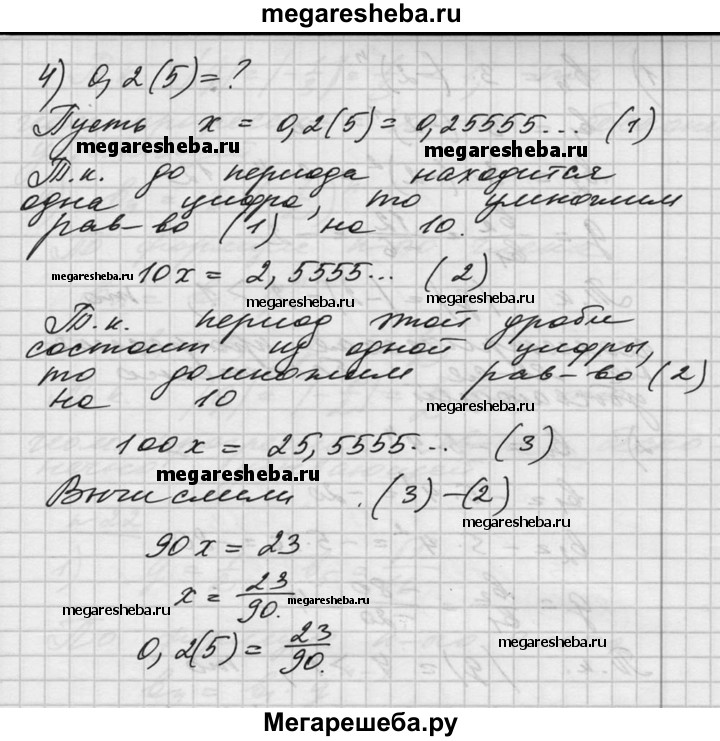 megaresheba.ru
4) 0,2(5)=?
Пусть x = 0,2(5)= 0,25555... (1)
megaresheba.ru megaresheba.ru
Т.к. до периода находится
одна цифра, то умножим
рав-во (1) на 10.
megaresheba.ru 10x = 2,5555... (2)
megaresheba.ru megaresheba.ru
Т.к. период этой дроби
состоит из одной цифры,
то домножим рав-во (2)
на 10 megaresheba.ru
100x = 25,5555... (3)
megaresheba.ru
Вычислили (3)-(2)
megaresheba.ru
90x = 23
x = 23/90.
megaresheba.ru megaresheba.ru
0,2(5) = 23/90.
megaresheba.ru
Мегарешеба.ру